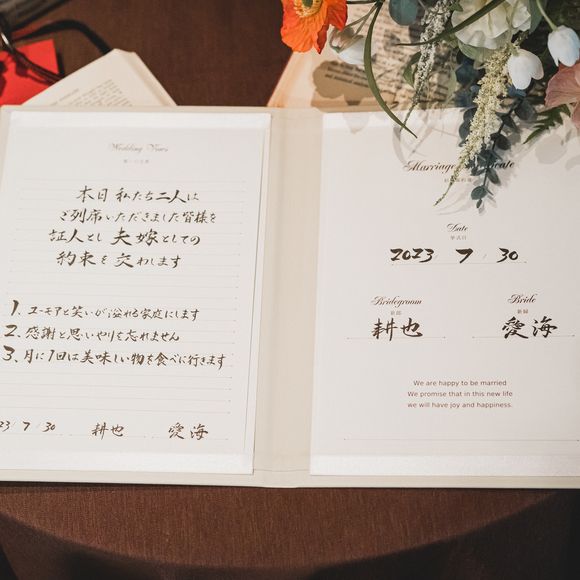 Wedding Vows
誓いの言葉
本日 私たち二人は
ご列席いただきました皆様を
証人とし 夫嫁としての
約束を 交わします
1. ユーモアと笑いが溢れる家庭にします
2. 感謝と思いやりを忘れません
3. 月に1回は美味しい物を食べに行きます
23/7/30 耕也 愛海
Marriage
Date
挙式日
2023/7/30
Bridegroom
新郎
耕也
Bride
新婦
愛海
We are happy to be married
We promise that in this new life
we will have joy and happiness.